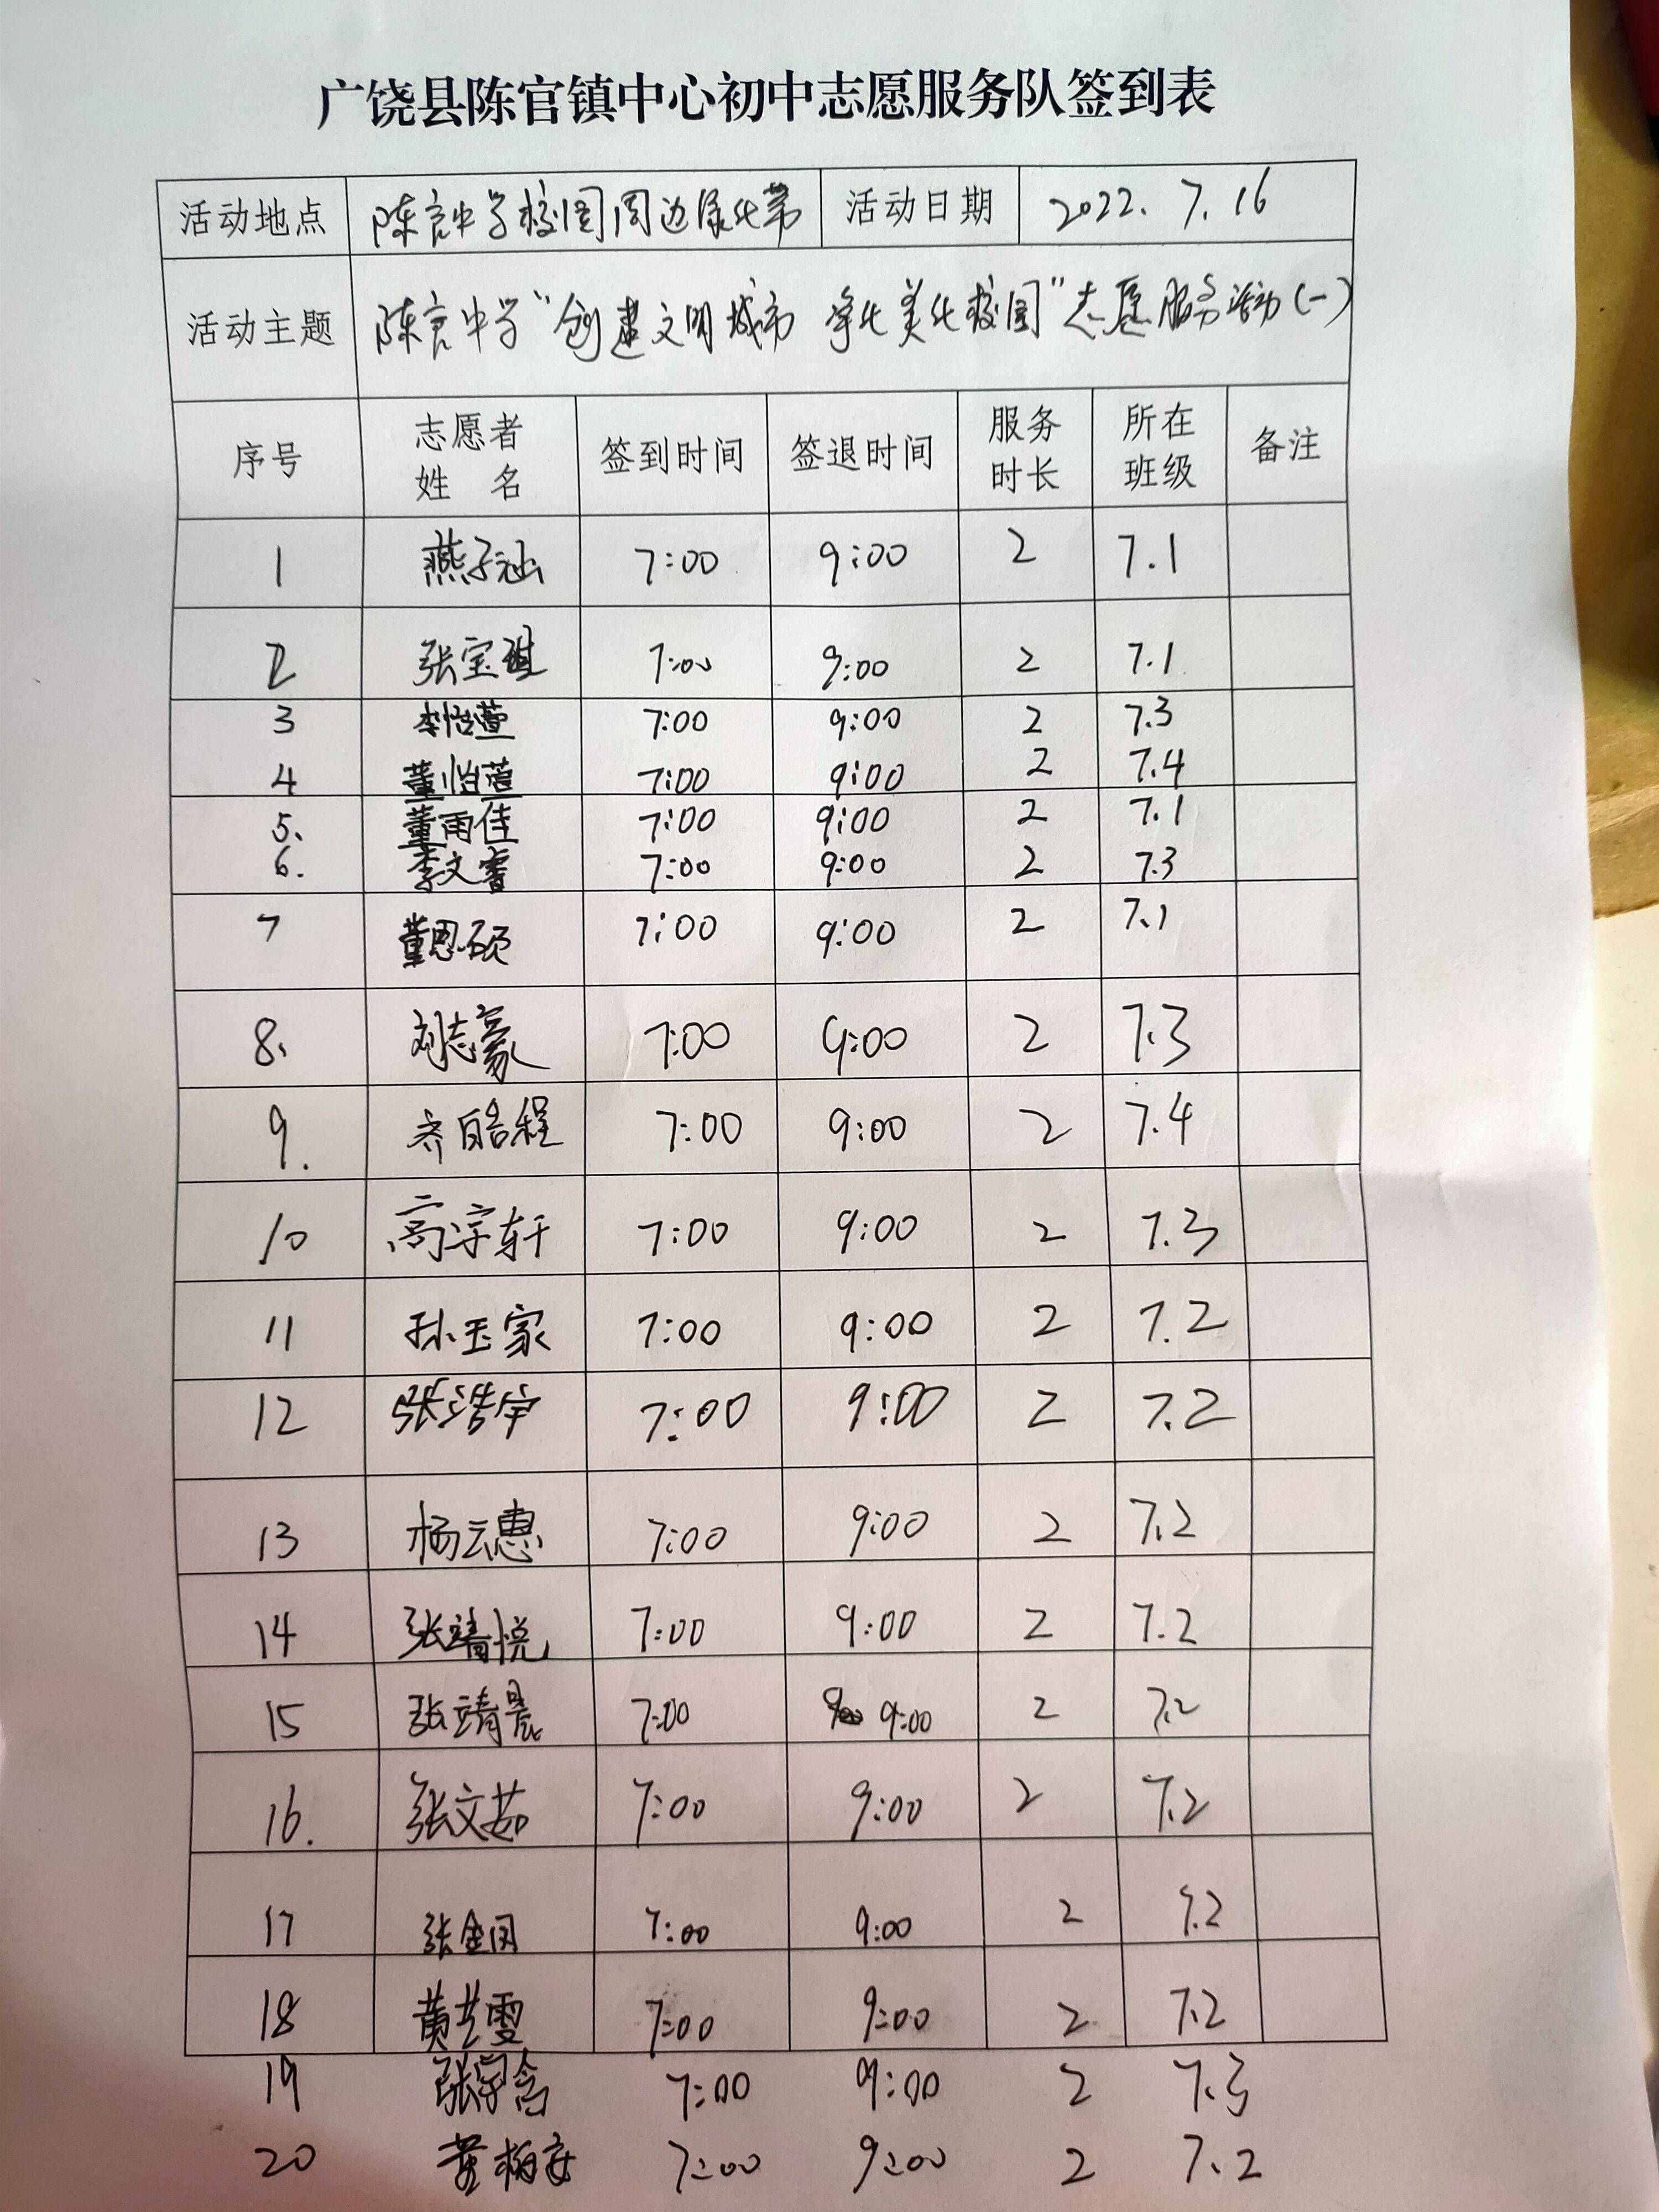 广饶县陈官镇中心初中志愿服务队签到表
活动地点 陈官中学校园周边绿化带 活动日期 2022.7.16
活动主题 陈官中学“创建文明城市 净化美化校园”志愿服务活动(一)
序号 志愿者姓名 签到时间 签退时间 服务时长 所在班级 备注
1 燕子涵 7:00 9:00 2 7.1
2 张宝琪 7:00 9:00 2 7.1
3 李怡萱 7:00 9:00 2 7.3
4 董怡萱 7:00 9:00 2 7.4
5. 董雨佳 7:00 9:00 2 7.1
6. 李文睿 7:00 9:00 2 7.3
7 董恩硕 7:00 9:00 2 7.1
8. 刘志豪 7:00 9:00 2 7.3
9. 齐皓程 7:00 9:00 2 7.4
10 高宇轩 7:00 9:00 2 7.3
11 孙玉家 7:00 9:00 2 7.2
12 张浩宇 7:00 9:00 2 7.2
13 杨云惠 7:00 9:00 2 7.2
14 张靖悦 7:00 9:00 2 7.2
15 张靖晨 7:00 9:00 2 7.2
16. 张文茹 7:00 9:00 2 7.2
17 7:00 9:00 2 7.2
18 黄艺雯 7:00 9:00 2 7.2
19 7:00 9:00 2 7.3
20 7:00 9:00 2 7.2